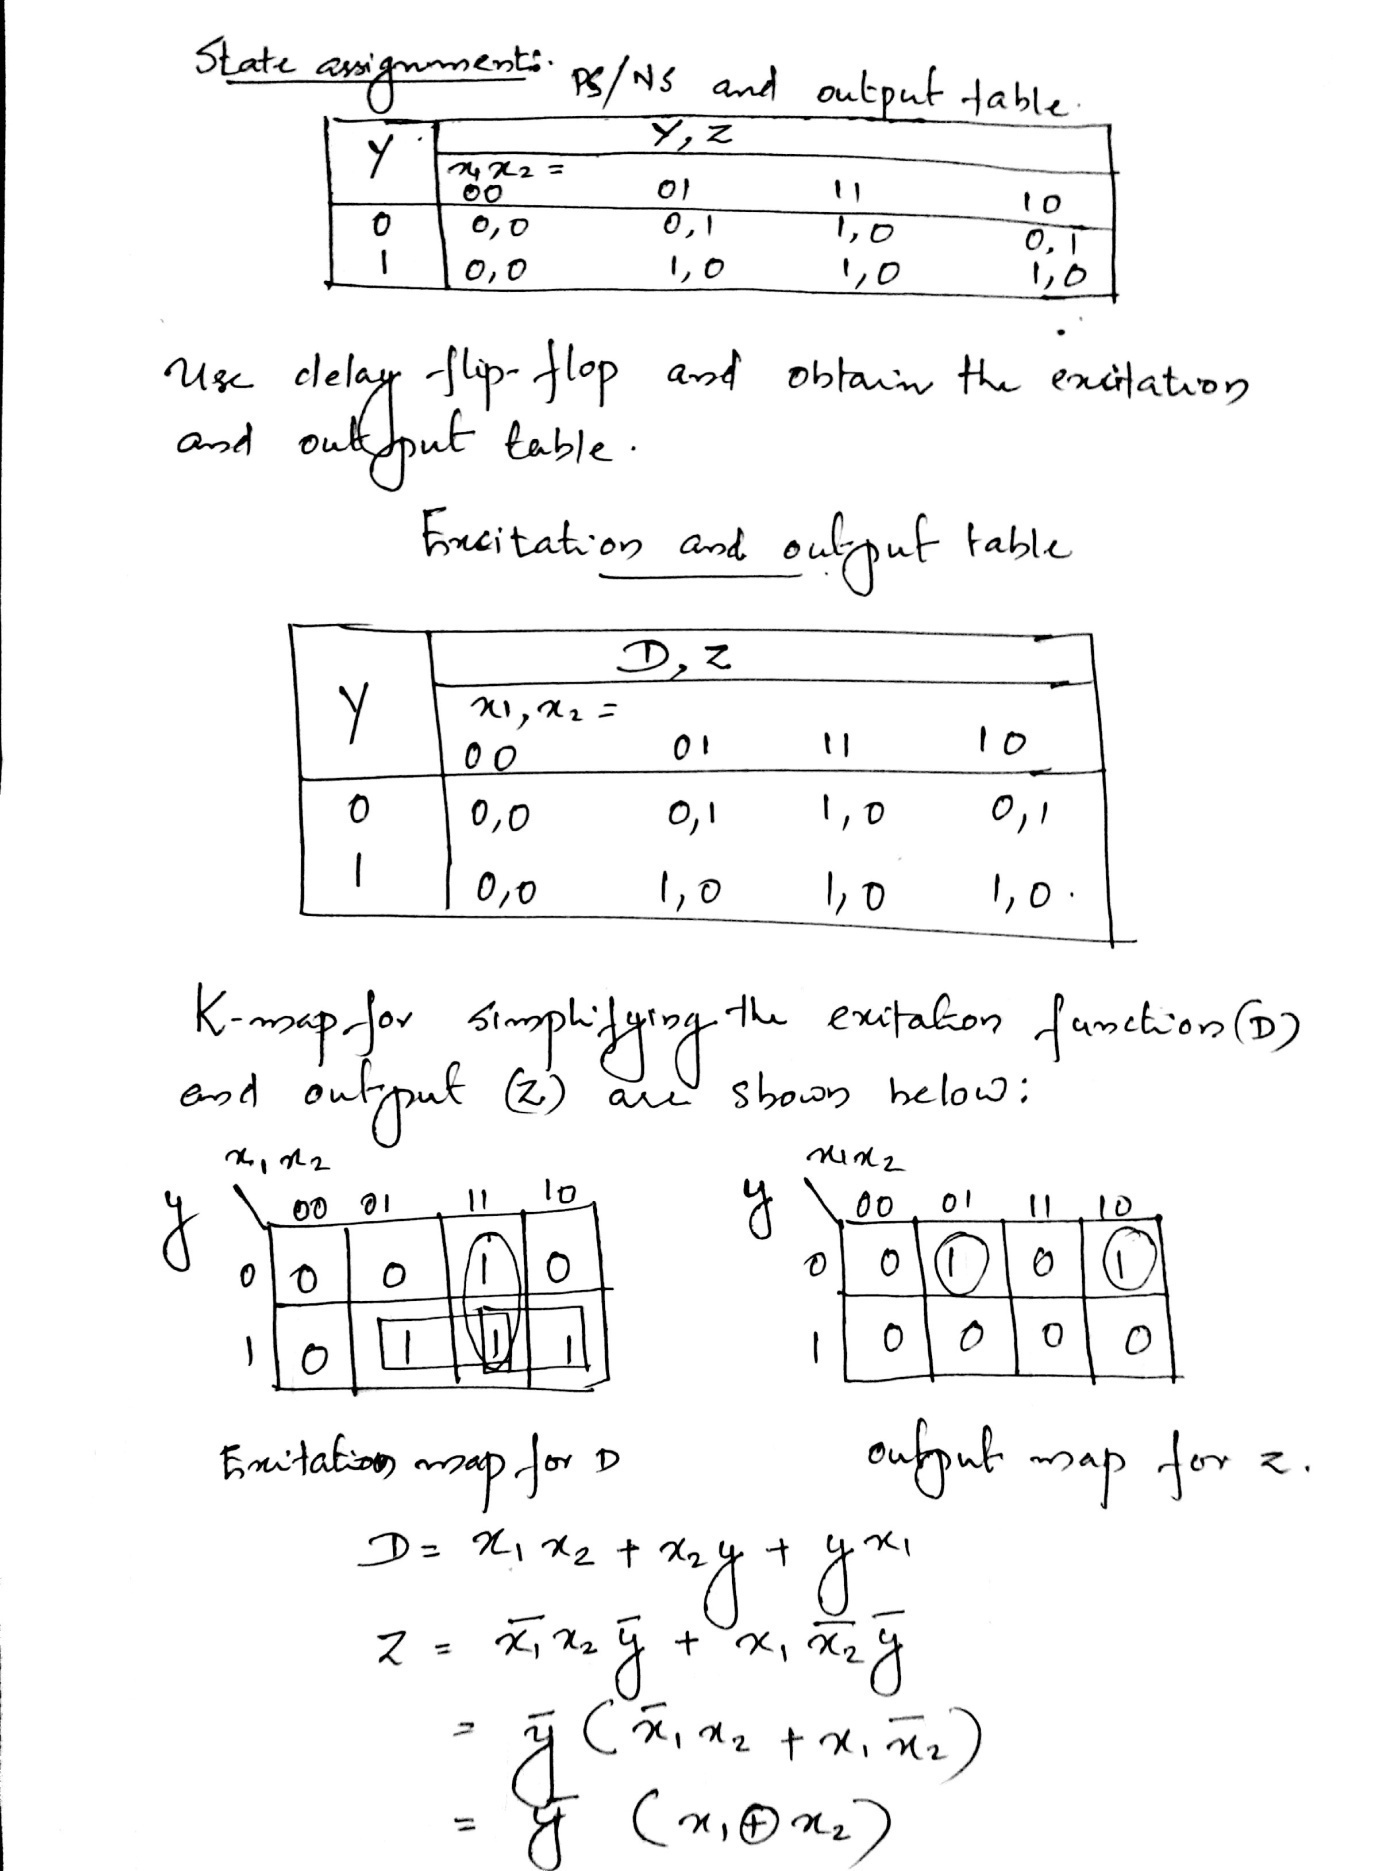 State assignment:. PS/NS and output table.
Y Y, Z
x1 x2 =
00 01 11 10
0 0,0 0,1 1,0 0,1
1 0,0 1,0 1,0 1,0
Use delay flip-flop and obtain the excitation
and output table.
Excitation and output table
Y D, Z
x1, x2 =
00 01 11 10
0 0,0 0,1 1,0 0,1
1 0,0 1,0 1,0 1,0.
K-map for simplifying the exitation function (D)
and output (Z) are shown below:
x1 x2 x1 x2
y 00 01 11 10 y 00 01 11 10
0 0 0 1 0 0 0 1 0 1
1 0 1 1 1 1 0 0 0 0
Exitation map for D output map for z.
D = x1 x2 + x2 y + y x1
Z = x̄1 x2 ȳ + x1 x̄2 ȳ
= ȳ (x̄1 x2 + x1 x̄2)
= ȳ (x1 ⊕ x2)